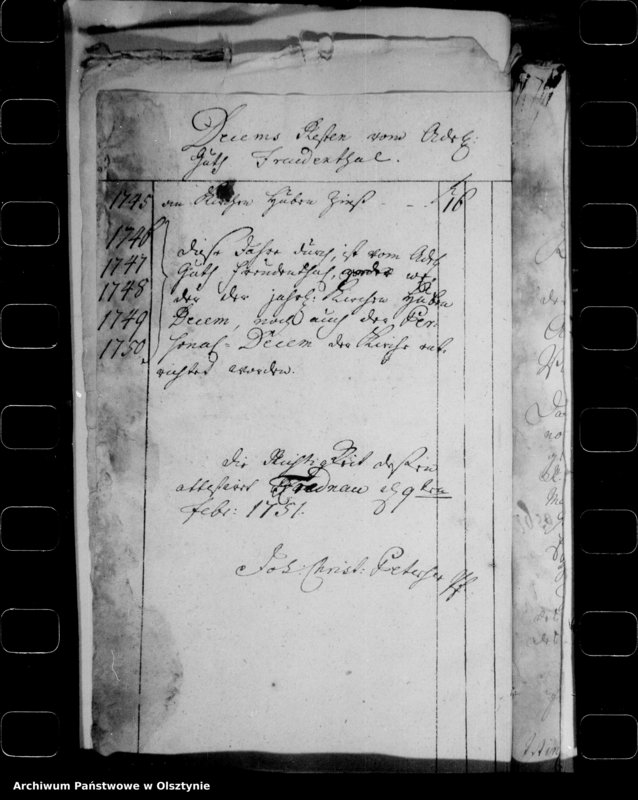 Decems Resten vom Adel:
Guth Freudenthal.
1745 an Kirchen Huben Zinß - - 16
1746
1747
1748
1749
1750
diese Jahre durch, ist vom Adel.
Guth Freudenthal, we-
der der jährl: Kirchen Huben
Decem, noch auch der Per-
sonal-Decem der Kirche ent-
richtet worden.
die Richtigkeit deßen
attestiret Frednau d 9ten
Febr: 1751.
Joh: Christ:
Archiwum Państwowe w Olsztynie